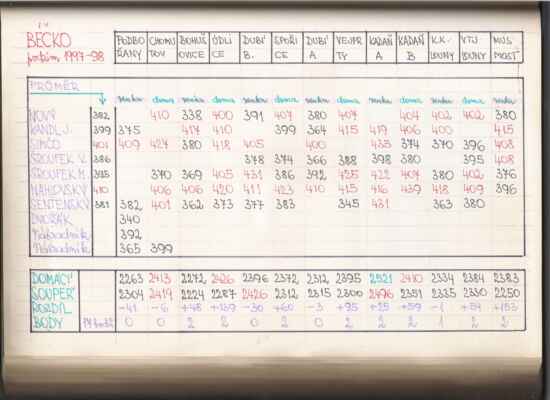 BEČKO
podzim 1997-98
PODBOŘANY CHOMUTOV BOHUŠOVICE ÚDLICE DUBÍ B. SPOŘICE DUBÍ A VEJPRTY KADAŇ A KADAŇ B K.K. LOUNY VTJ LOUNY MUS. MOST
PRŮMĚR
venku doma venku doma venku doma venku doma venku doma venku doma venku
NOVÝ 382 410 338 400 391 407 380 407 404 402 402 380
KANDL J. 399 375 417 410 399 364 415 419 406 400 415
SIMČO 401 409 427 380 418 405 400 435 374 370 396 408
ŠROUBEK V. 386 378 374 366 388 398 380 395 408
ŠROUBEK M. 395 370 369 405 431 386 392 425 422 407 380 402 376
MAHOVSKÝ 410 406 406 420 411 423 410 415 416 439 418 409 396
SENTENSKÝ 381 382 401 362 373 377 383 345 431 363 380
DVOŘÁK 340
Náhradník 392
Náhradník 365 399
DOMÁCÍ 2263 2413 2272 2426 2396 2372 2312 2395 2521 2410 2334 2384 2383
SOUPEŘ 2304 2419 2224 2287 2426 2312 2315 2300 2496 2351 2335 2330 2250
ROZDÍL -41 -6 +48 +139 -30 +60 -3 +95 +25 +59 -1 +54 +133
BODY 0 0 2 2 0 2 0 2 2 2 1 2 2